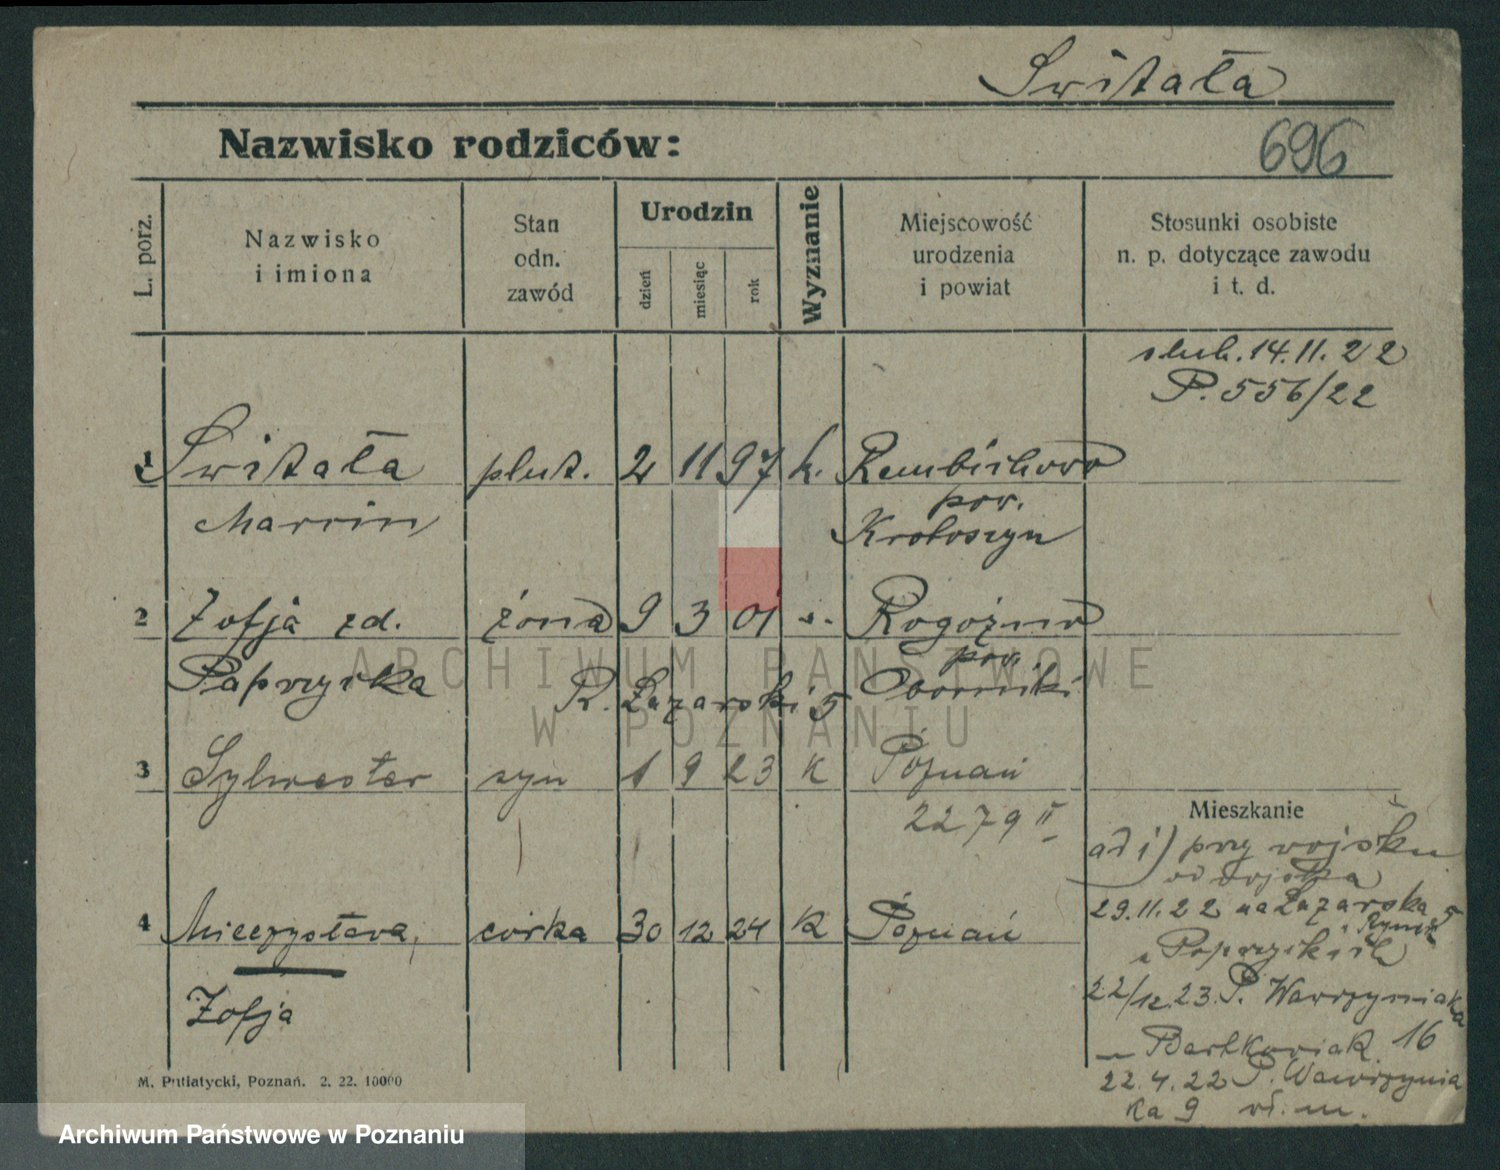 Switała
Nazwisko rodziców:
696
L. porz.
Nazwisko
i imiona
Stan
odn.
zawód
Urodzin
dzień
miesiąc
rok
Wyznanie
Miejscowość
urodzenia
i powiat
Stosunki osobiste
n. p. dotyczące zawodu
i t. d.
slub. 14.11.22
P. 556/22
1 Switała plut. 2 11 97 k. Rembichowo
Marcin pow. Krotoszyn
2 Zofja zd. żona 9 3 01 Rogoźno
Paprzycka R. Łazarski 5 pow. Oborniki
3 Sylwester syn 1 9 23 K Poznań
2279 II
4 Mieczysława, córka 30 12 24 K Poznań
Zofja
Mieszkanie
ad 1) przy wojsku
od wojska
29.11.22 na Łazarska 5
Rynek
u Paprzyckich
22/12.23. P. Wawrzyniaka
Bartkowiak 16
22.4.22 P. Wawrzynia
ka 9 wł. m.
M. Putiatycki, Poznań. 2. 22. 10000
ARCHIWUM PAŃSTWOWE
W POZNANIU
Archiwum Państwowe w Poznaniu